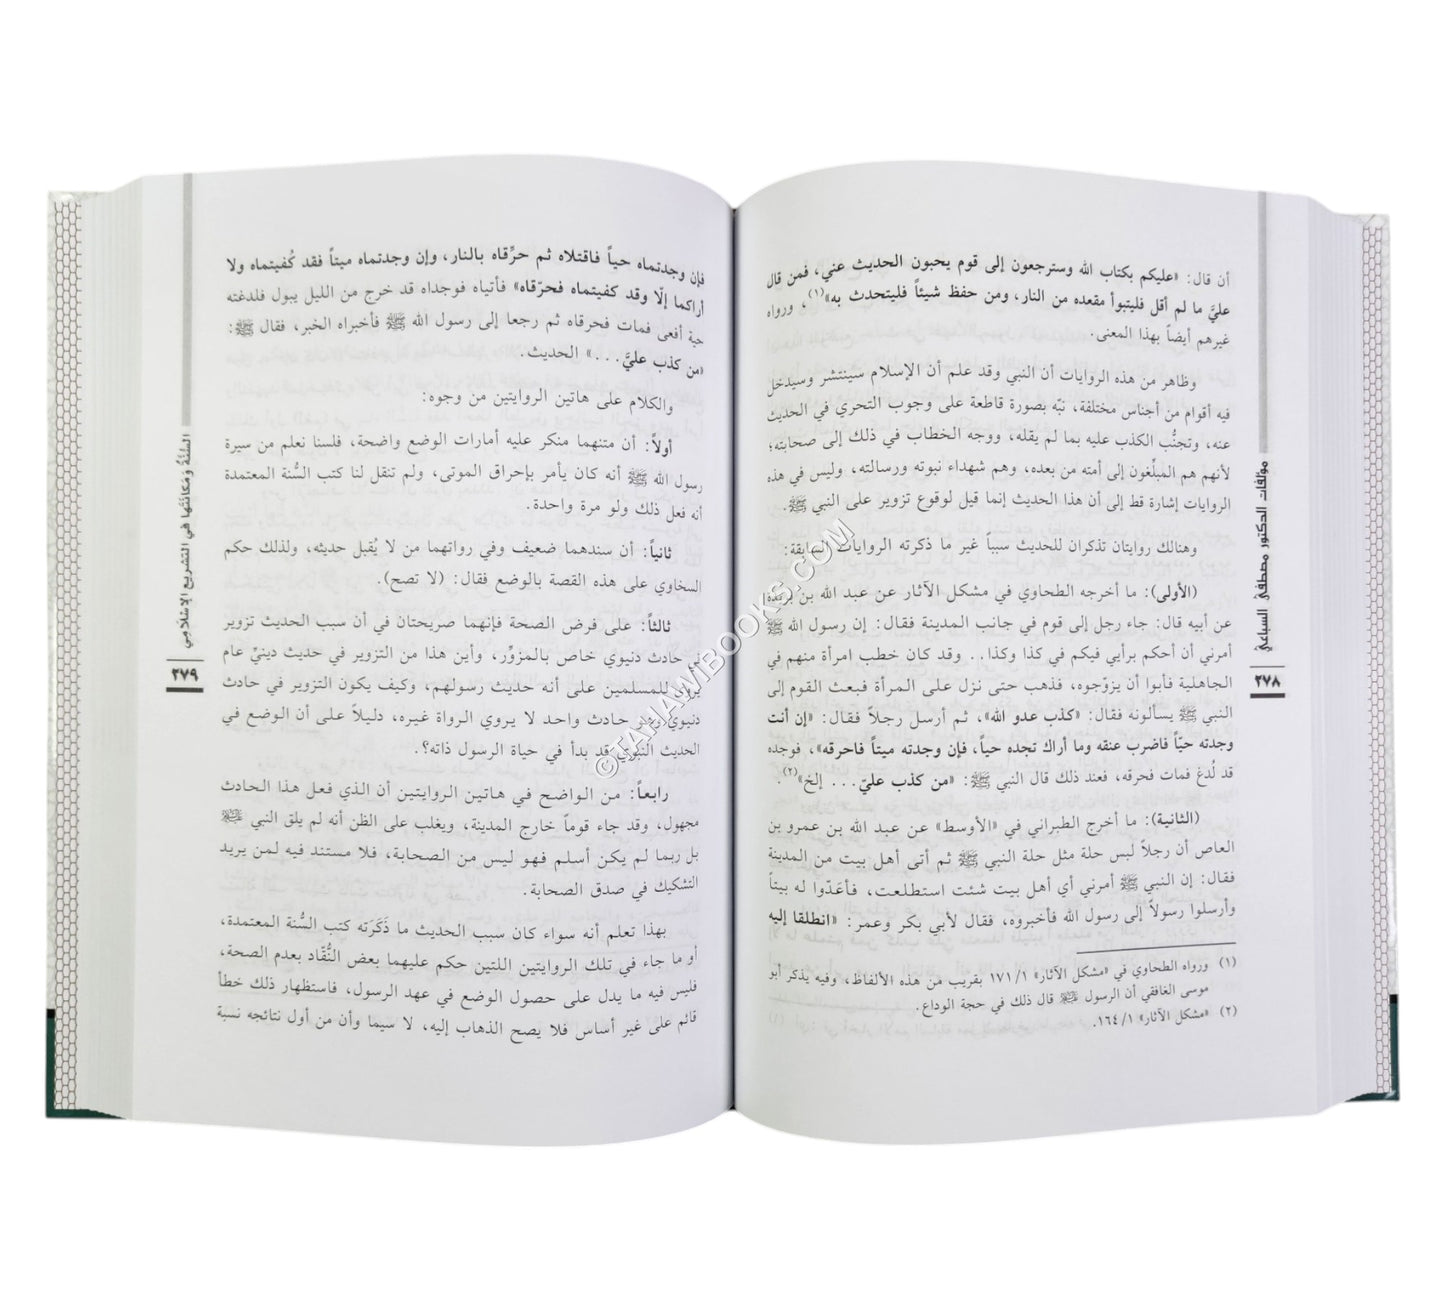 مؤلفات الدكتور مصطفى السباعي
٢٧٨
أن قال: «عليكم بكتاب الله وسترجعون إلى قوم يحبون الحديث عني، فمن قال
عليَّ ما لم أقل فليتبوأ مقعده من النار، ومن حفظ شيئاً فليتحدث به»(١)، ورواه
غيرهم أيضاً بهذا المعنى.
وظاهر من هذه الروايات أن النبي وقد علم أن الإسلام سينتشر وسيدخل
فيه أقوام من أجناس مختلفة، نبّه بصورة قاطعة على وجوب التحري في الحديث
عنه، وتجنُّب الكذب عليه بما لم يقله، ووجه الخطاب في ذلك إلى صحابته؛
لأنهم هم المبلِّغون إلى أمته من بعده، وهم شهداء نبوته ورسالته، وليس في هذه
الروايات إشارة قط إلى أن هذا الحديث إنما قيل لوقوع تزوير على النبي ﷺ.
وهنالك روايتان تذكران للحديث سبباً غير ما ذكرته الروايات السابقة:
(الأولى): ما أخرجه الطحاوي في مشكل الآثار عن عبد الله بن بريدة
عن أبيه قال: جاء رجل إلى قوم في جانب المدينة فقال: إن رسول الله ﷺ
أمرني أن أحكم برأيي فيكم في كذا وكذا.. وقد كان خطب امرأة منهم في
الجاهلية فأبوا أن يزوّجوه، فذهب حتى نزل على المرأة فبعث القوم إلى
النبي ﷺ يسألونه فقال: «كذب عدو الله»، ثم أرسل رجلاً فقال: «إن أنت
وجدته حيّاً فاضرب عنقه وما أراك تجده حياً، فإن وجدته ميتاً فاحرقه»، فوجده
قد لُدغ فمات فحرقه، فعند ذلك قال النبي ﷺ: «من كذب عليّ... إلخ»(٢).
(الثانية): ما أخرج الطبراني في «الأوسط» عن عبد الله بن عمرو بن
العاص أن رجلاً لبس حلة مثل حلة النبي ﷺ ثم أتى أهل بيت من المدينة
فقال: إن النبي ﷺ أمرني أي أهل بيت شئت استطلعت، فأعَدّوا له بيتاً
وأرسلوا رسولاً إلى رسول الله فأخبروه، فقال لأبي بكر وعمر: «انطلقا إليه
(١) ورواه الطحاوي في «مشكل الآثار» ١٧١/١ بقريب من هذه الألفاظ، وفيه يذكر أبو
موسى الغافقي أن الرسول ﷺ قال ذلك في حجة الوداع.
(٢) «مشكل الآثار» ١٦٤/١.
السُّنَّةُ وَمَكانَتُها في التشريع الإسْلَامِي
٢٧٩
فإن وجدتماه حياً فاقتلاه ثم حرِّقاه بالنار، وإن وجدتماه ميتاً فقد كُفيتماه ولا
أراكما إلّا وقد كفيتماه فحرّقاه» فأتياه فوجداه قد خرج من الليل يبول فلدغته
حية أفعى فمات فحرقاه ثم رجعا إلى رسول الله ﷺ فأخبراه الخبر، فقال ﷺ:
«من كذب عليَّ...» الحديث.
والكلام على هاتين الروايتين من وجوه:
أولاً: أن متنهما منكر عليه أمارات الوضع واضحة، فلسنا نعلم من سيرة
رسول الله ﷺ أنه كان يأمر بإحراق الموتى، ولم تنقل لنا كتب السُّنة المعتمدة
أنه فعل ذلك ولو مرة واحدة.
ثانياً: أن سندهما ضعيف وفي رواتهما من لا يُقبل حديثه، ولذلك حكم
السخاوي على هذه القصة بالوضع فقال: (لا تصح).
ثالثاً: على فرض الصحة فإنهما صريحتان في أن سبب الحديث تزوير
في حادث دنيوي خاص بالمزوِّر، وأين هذا من التزوير في حديث دينيٍّ عام
يروى للمسلمين على أنه حديث رسولهم، وكيف يكون التزوير في حادث
دنيوي وهو حادث واحد لا يروي الرواة غيره، دليلاً على أن الوضع في
الحديث النبوي قد بدأ في حياة الرسول ذاته؟.
رابعاً: من الواضح في هاتين الروايتين أن الذي فعل هذا الحادث
مجهول، وقد جاء قوماً خارج المدينة، ويغلب على الظن أنه لم يلق النبي ﷺ
بل ربما لم يكن أسلم فهو ليس من الصحابة، فلا مستند فيه لمن يريد
التشكيك في صدق الصحابة.
بهذا تعلم أنه سواء كان سبب الحديث ما ذَكَرَته كتب السُّنة المعتمدة،
أو ما جاء في تلك الروايتين اللتين حكم عليهما بعض النُّقَّاد بعدم الصحة،
فليس فيه ما يدل على حصول الوضع في عهد الرسول، فاستظهار ذلك خطأ
قائم على غير أساس فلا يصح الذهاب إليه، لا سيما وأن من أول نتائجه نسبة
© TAHAWIBOOKS.COM